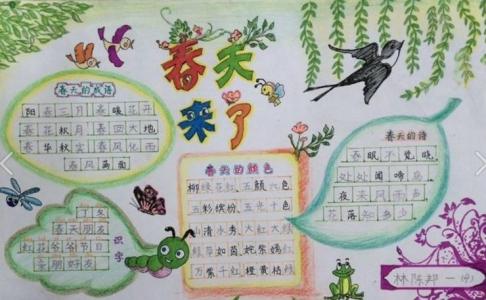 春天
来了
春天的成语
阳春三月 春暖花开
春花秋月 春回大地
春华秋实 春风化雨
春风满面
春天的诗
春眠不觉晓
处处闻啼鸟
夜来风雨声
花落知多少
春天的颜色
柳绿花红 五颜六色
五彩缤纷 五光十色
山清水秀 大红大绿
绿草如茵 姹紫嫣红
万紫千红 橙黄桔绿
识字
春天朋友
红花爷爷节日
亲朋好友
林陈邦 一